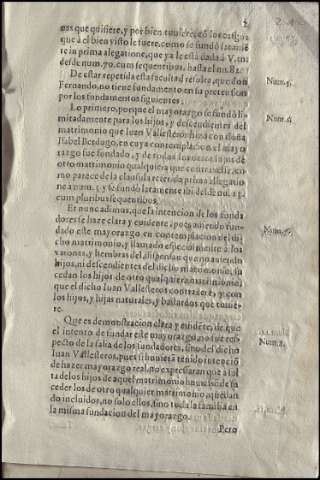 nas que quisiere, y por bien tuuiere, con los
que à el bien visto le fuere, como se fundó
te in prima alegatione, que ya le està dada à V. m.
desde num. 70. cum sequentibus, hasta el nu. 82.
De estar repetida esta facultad resulta, que don
Fernando, no tiene fundamento en su pretension
por los fundamentos siguientes.
Num. 5.
Lo primero, porque el mayorazgo se fundó li-
mitadamente para los hijos, y descendientes del
matrimonio que Iuan Vallesteros hizo con doña
Isabel Berdugo, en cuya contemplacion el mayo
razgo fue fundado, y de todas los otros hijos de
otro matrimonio qualquiera que contraxesse, co-
mo parece de la clausula referida prima allegatio
ne à num. 1. y se fundó latamente ibi desde nu.
cum pluribus sequentibus.
Num. 6.
Et nunc adimus, que la intencion de los funda
dores se haze clara y euidente, pues auiendo fun-
dado este mayorazgo en contemplacion del di-
cho matrimonio, y llamado especialmente à los
varones, y hembras del, dispondan que no auiendo
hijos, ni descendientes del dicho matrimonio, su
cedan los hijos de otro qualquiera matrimonio,
que el dicho Iuan Vallesteros contraera, y con
los hijos, y hijas naturales, y bastardos que tuuie-
re.
Que es demonstracion clara y euidẽte, de que
el intento de fundar este mayorazgo, no fue res-
pecto de la falta de los fundadores, sino del dicho
Iuan Vallesteros, pues si huuierã tenido intenciõ
de hazer mayorazgo real, no expressaran que à fal
ta de los hijos de aquel matrimonio huuiessen de su
ceder los de otro qualquier matrimonio, aquedan
do incluidos, no solo ellos, sino toda la familia en
la misma fundacion del mayorazgo.
Num.
Pero